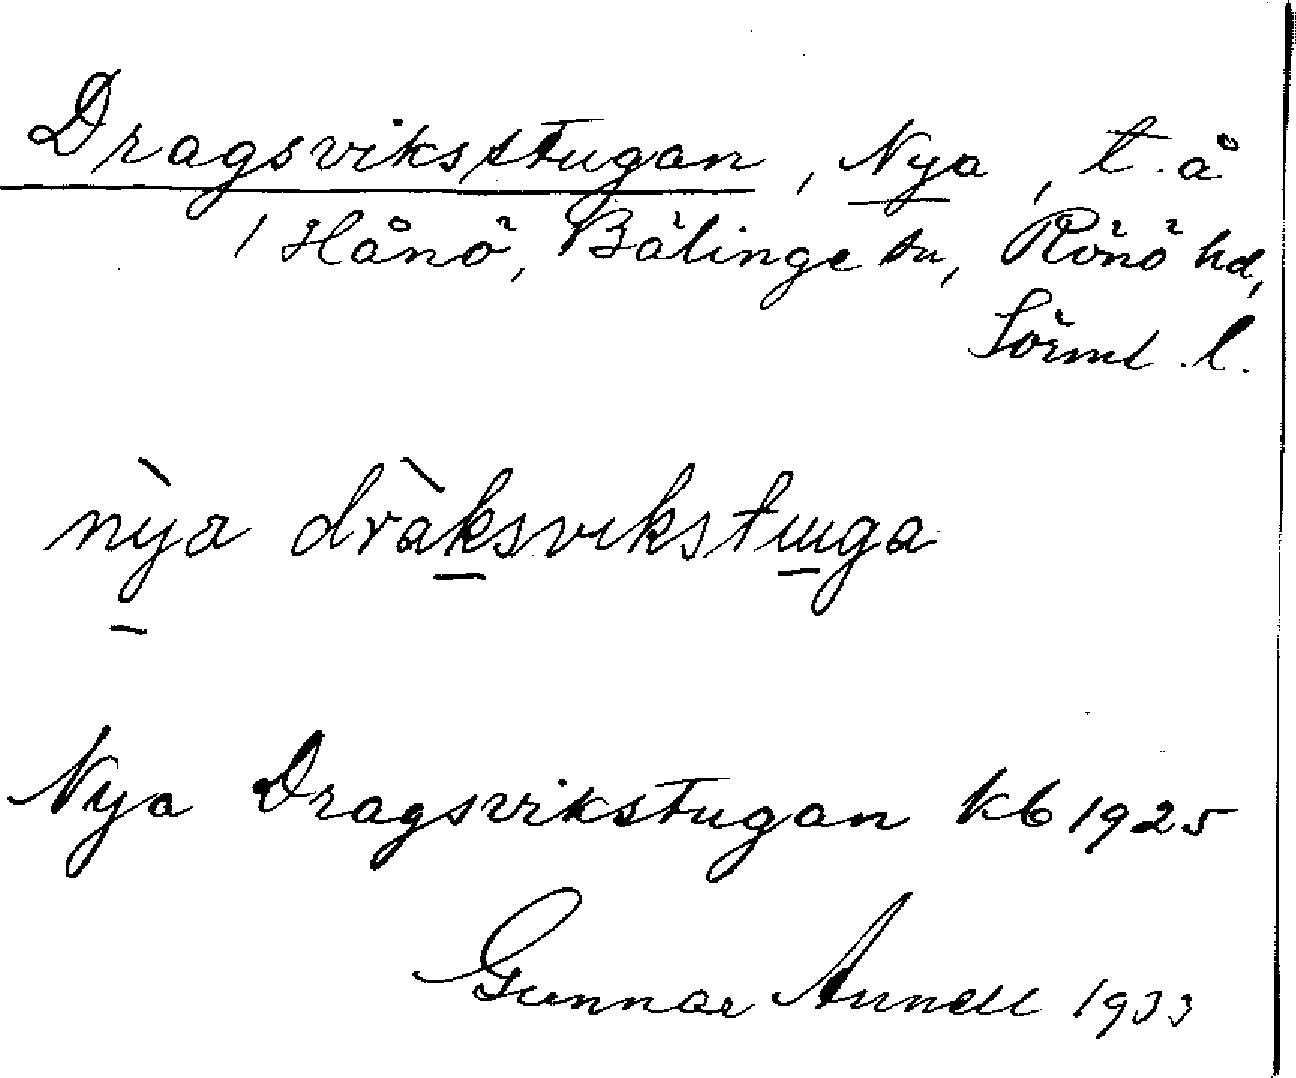 Dragsviksstugan, Nya, t. å
/ Hånö, Bälinge sn, Rönö hd,
Sörml. l.
nỳa dràksvikstuga
Nya Dragsvikstugan kb 1925
Gunnar Arnell 1933